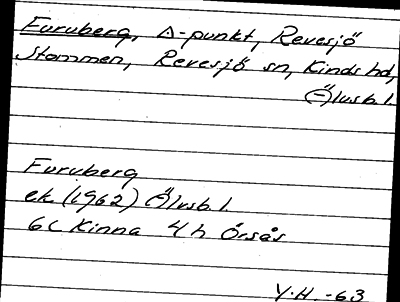 Furuberg, Δ-punkt, Revesjö
Stommen, Revesjö sn, Kinds hd,
(Ä)lvsb. l.
Furuberg
ek. (1962) (Ä)lvsb. l.
6C Kinna 4h Örsås
Y.H. -63